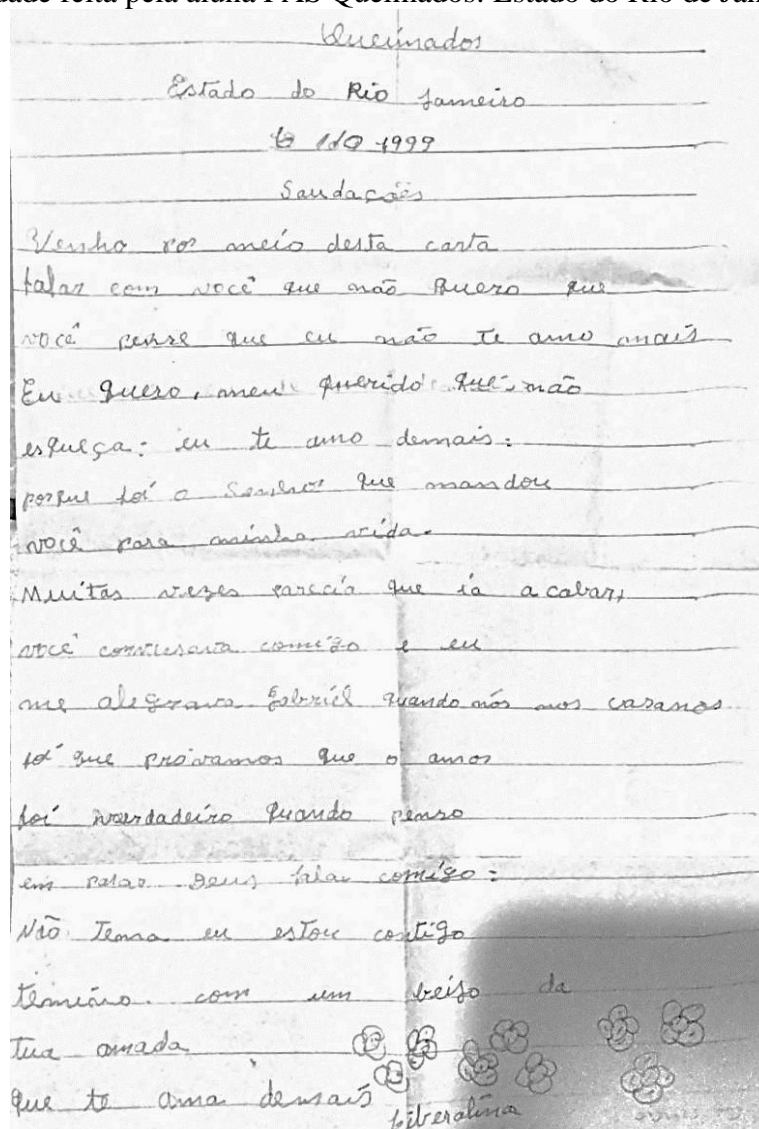 dade feita pela aluna PAS Queimados. Estado do Rio de Jan
Queimados
Estado do Rio Janneiro
10 1999
Saudações
Venho por meio desta carta
falar com você que não quero que
você pense que eu não te amo mais
Eu quero, meu querido que não
esqueça: eu te amo demais:
porque foi o Senhor que mandou
você para minha vida.
Muitas vezes parecia que ia acabar,
você conversava comigo e eu
me alegrava Gabriel quando nós nos casanos
foi que próvamos que o amor
foi verdadeiro quando penso
em parar Deus falar comigo:
Não Tema eu estou contigo
termino. com um beijo da
tua amada
que te ama demais Liberalina